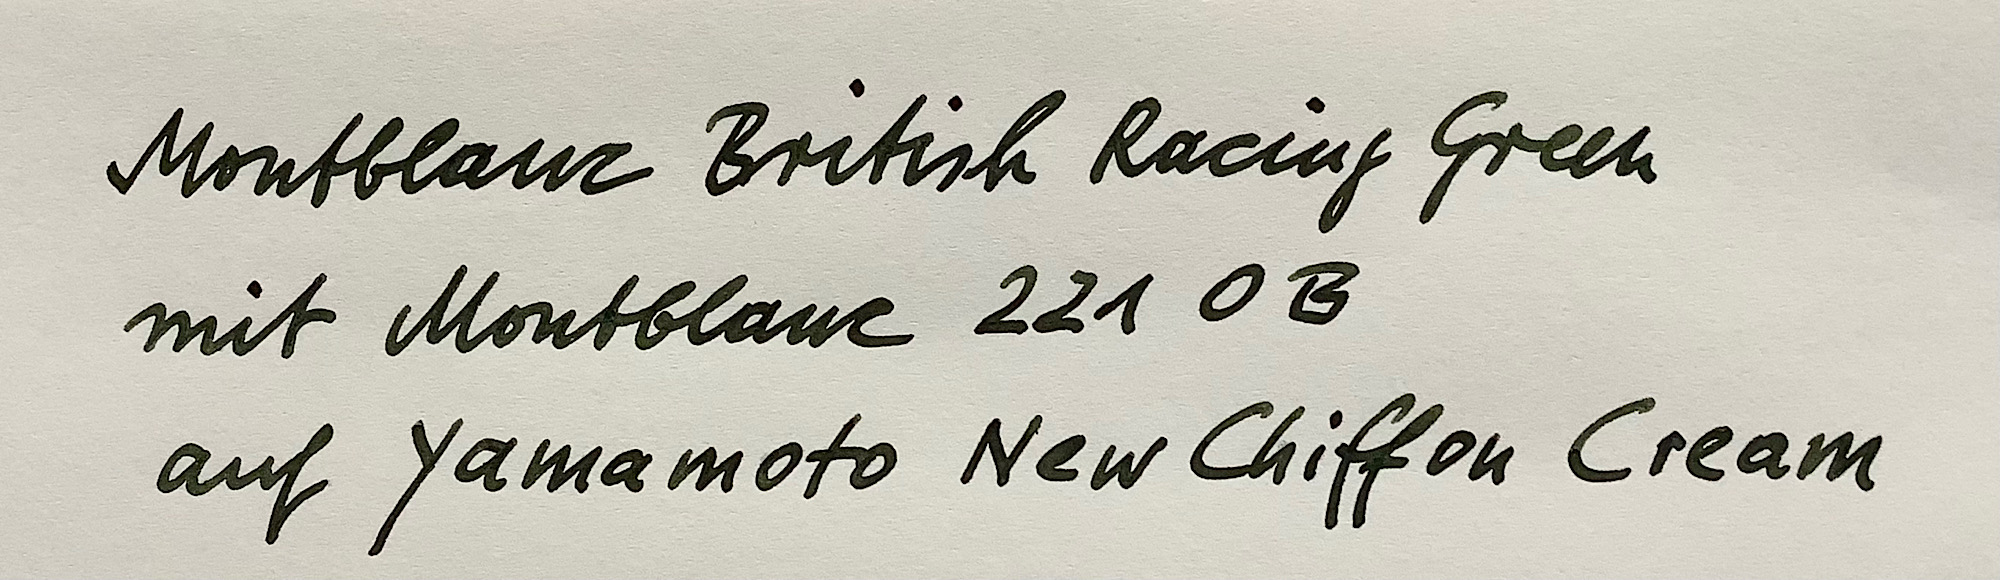 Montblanc British Racing Green
mit Montblanc 221 OB
auf Yamamoto New Chiffon Cream